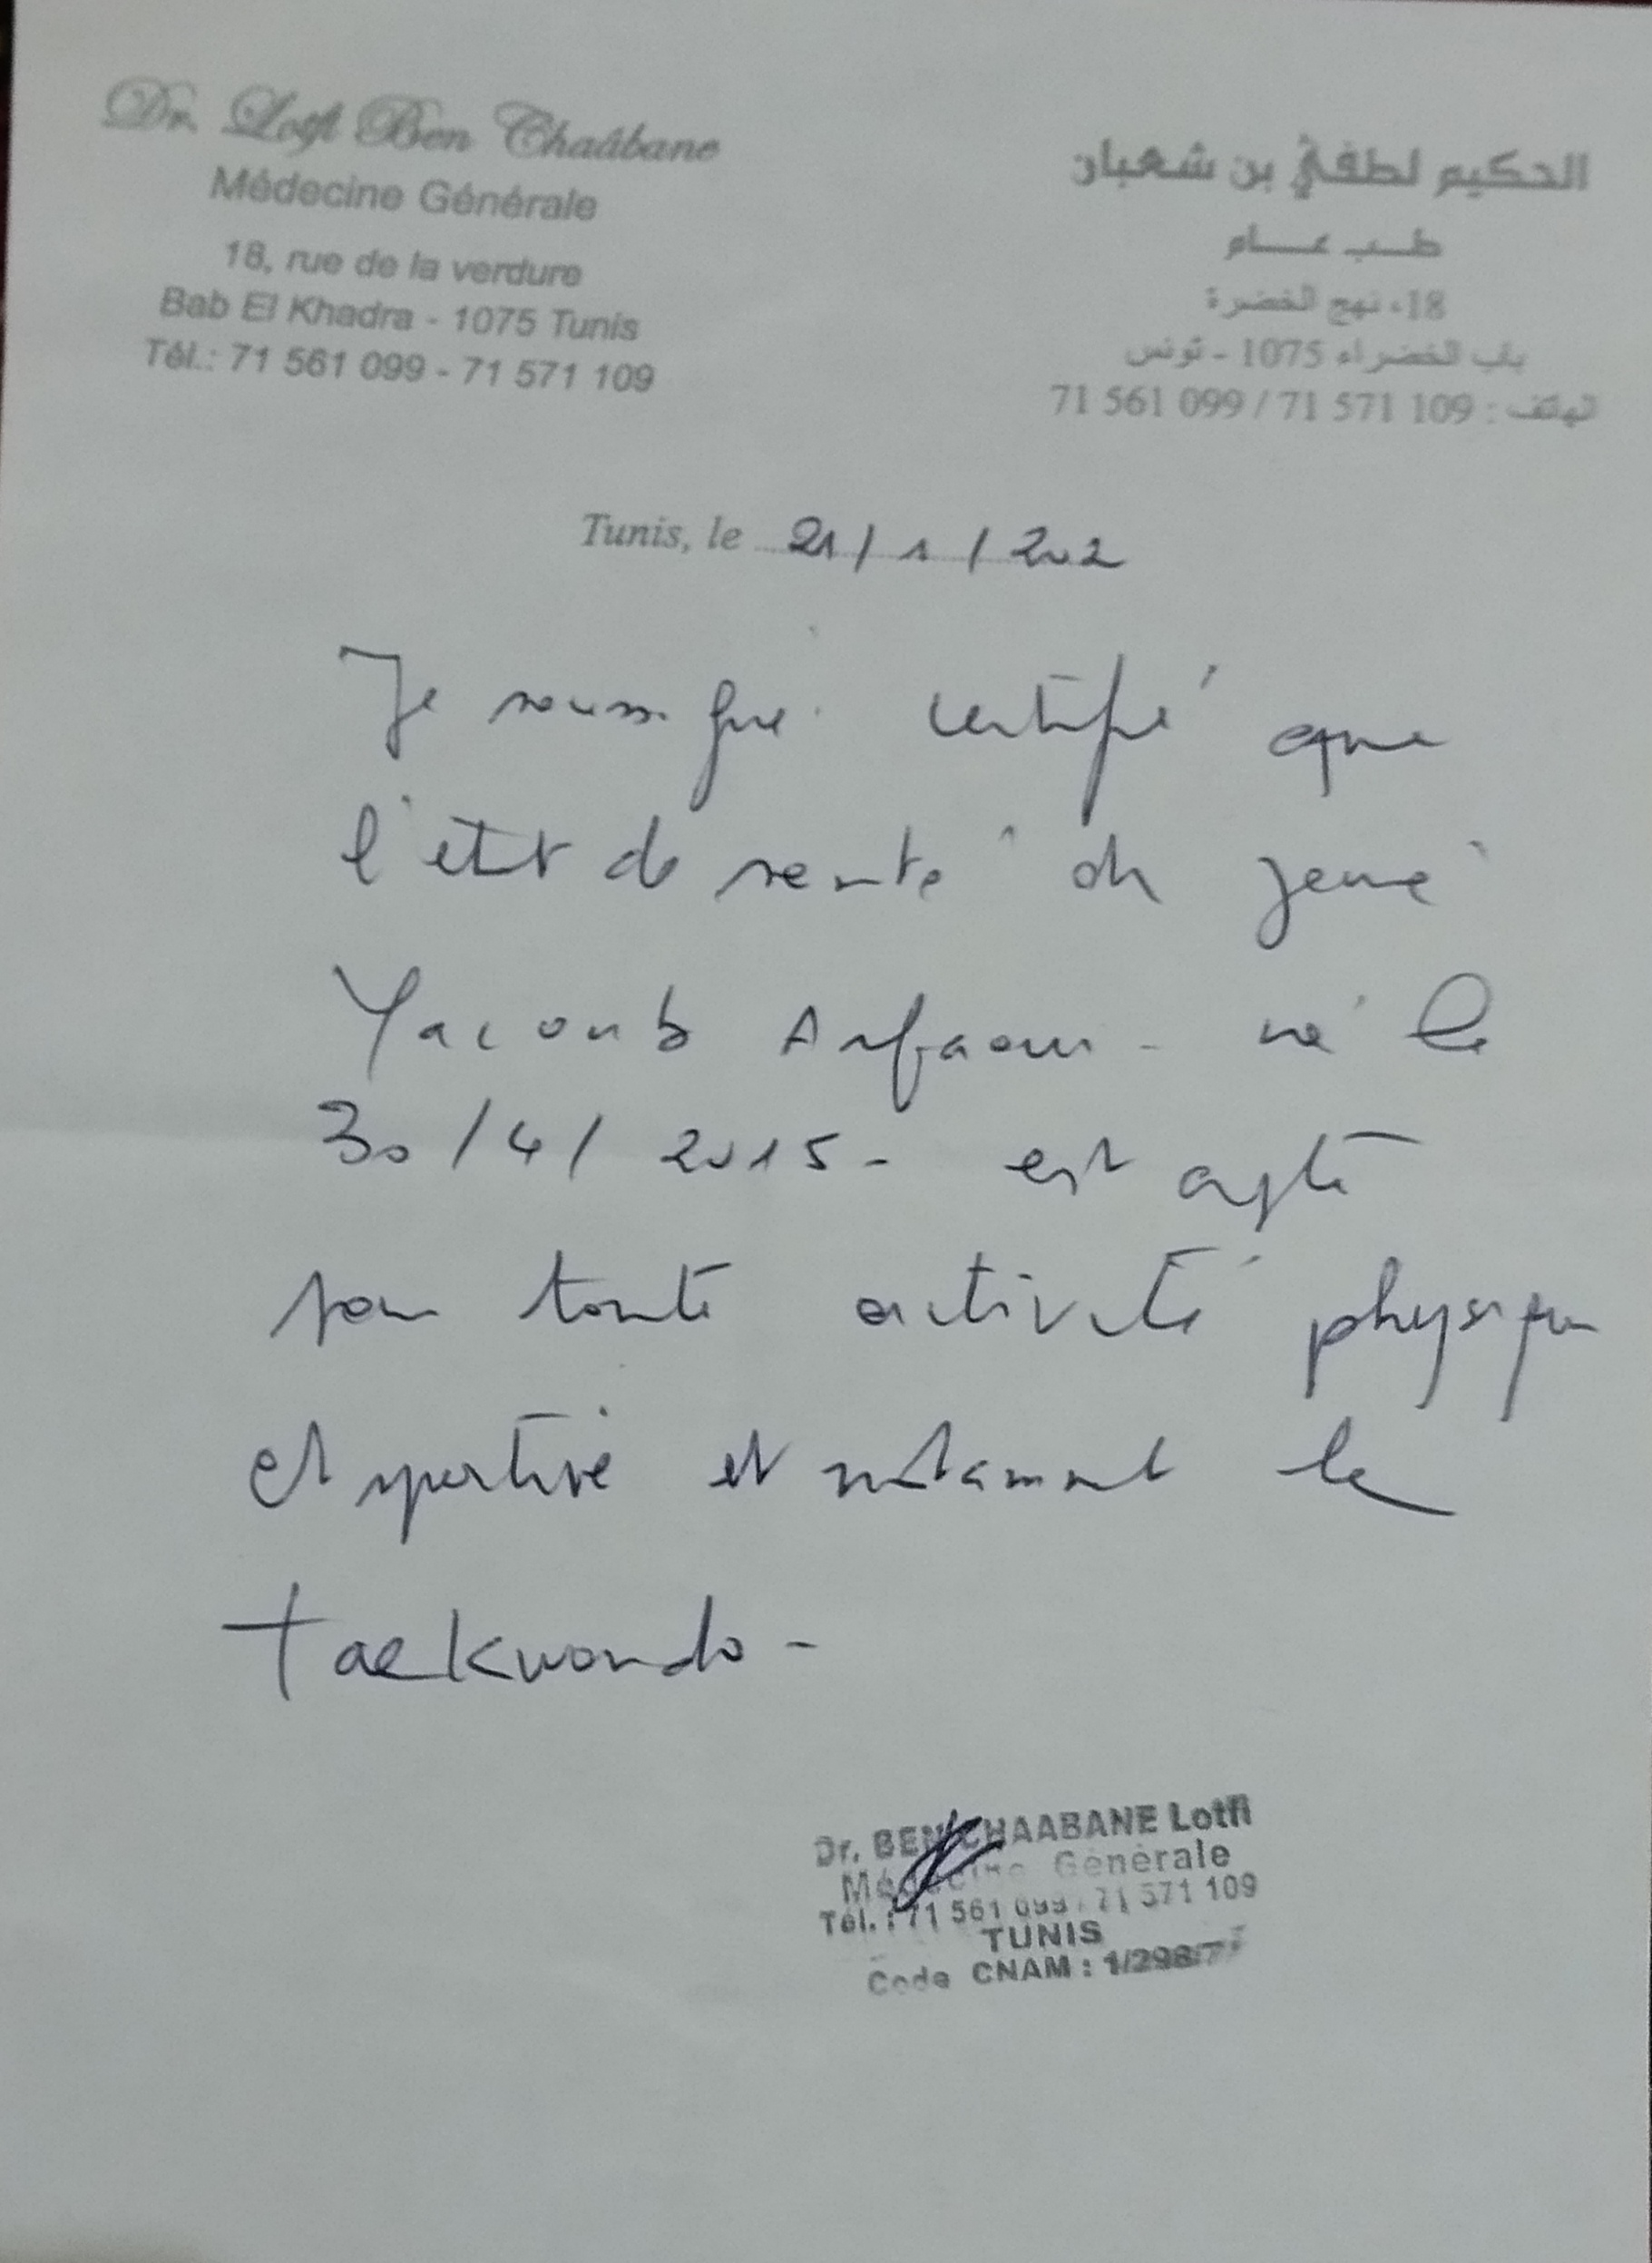 Dr. Lotfi Ben Chaâbane
Médecine Générale
18, rue de la verdure
Bab El Khadra - 1075 Tunis
Tél.: 71 561 099 - 71 571 109
الحكيم لطفي بن شعبان
طب عام
18، نهج الخضرة
باب الخضراء 1075 - تونس
الهاتف : 71 561 099 / 71 571 109
Tunis, le 21 / 1 / 202
Je soussigné certifié que
l'état de santé du jeune
Yacoub né le
30 / 4 / 2015 - est apte
pour toute activité physique
et sportive et notamment le
taekwondo -
Dr. BEN CHAABANE Lotfi
Médecine Générale
Tél. : 71 561 099 / 71 571 109
TUNIS
Code CNAM :